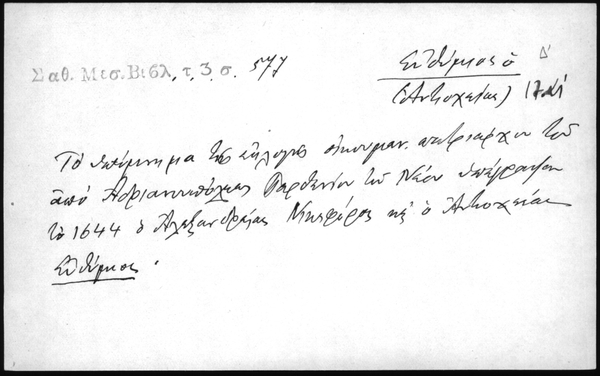 Σαθ. Μεσ. Βιβλ, τ. 3. σ. 577
Εὐθύμιος ὁ Δ'
(Ἀντιοχείας) ΙΖ'
Τὸ ὑπόμνημα τῆς ἐκλογῆς οἰκουμεν. πατριάρχου τοῦ
ἀπὸ Ἀδριανουπόλεως Παρθενίου τοῦ Νέου ὑπέγραψαν
τὸ 1644 ὁ Ἀλεξανδρείας Νικηφόρος κὲ ὁ Ἀντιοχείας
Εὐθύμιος.